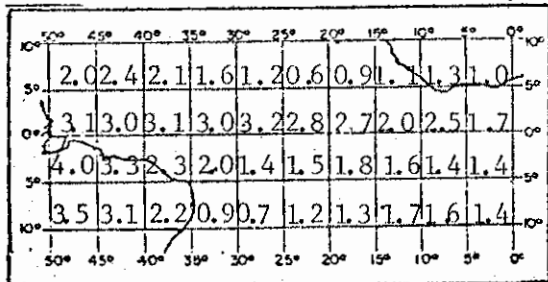 50° 45° 40° 35° 30° 25° 20° 15° 10° 5° 0°
10° 10°
2.0 2.4 2.1 1.6 1.2 0.6 0.9 1.1 1.3 1.0
5° 5°
3.1 3.0 3.1 3.0 3.2 2.8 2.7 2.0 2.5 1.7
0° 0°
4.0 3.3 2.3 2.0 1.4 1.5 1.8 1.6 1.4 1.4
5° 5°
3.5 3.1 2.2 0.9 0.7 1.2 1.3 1.7 1.6 1.4
10° 10°
50° 45° 40° 35° 30° 25° 20° 15° 10° 5° 0°